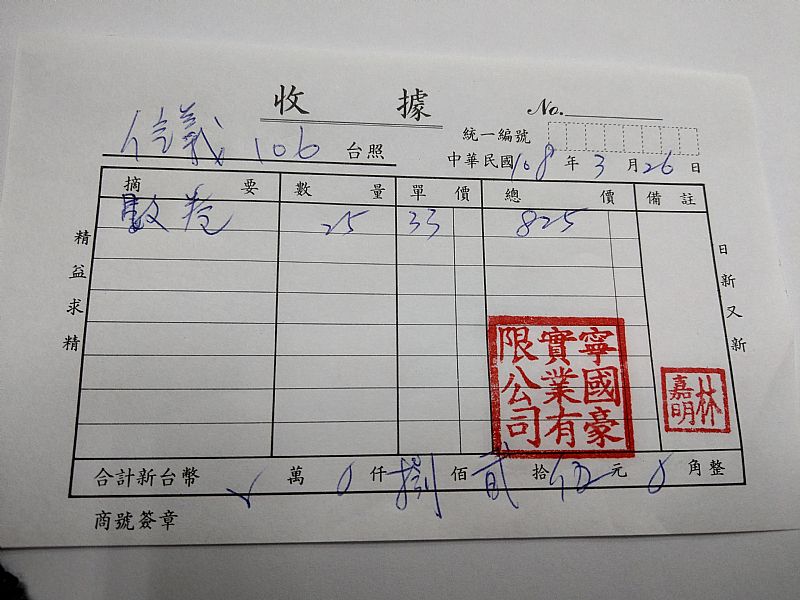 收據
No.
統一編號
信義 106 台照
中華民國108年3月26日
摘要 數量 單價 總價 備註
25 33 825
精益求精
日新又新
寧國豪實業有限公司
林嘉明
合計新台幣 萬 0 仟 捌 佰 貳 拾 伍 元 0 角整
商號簽章